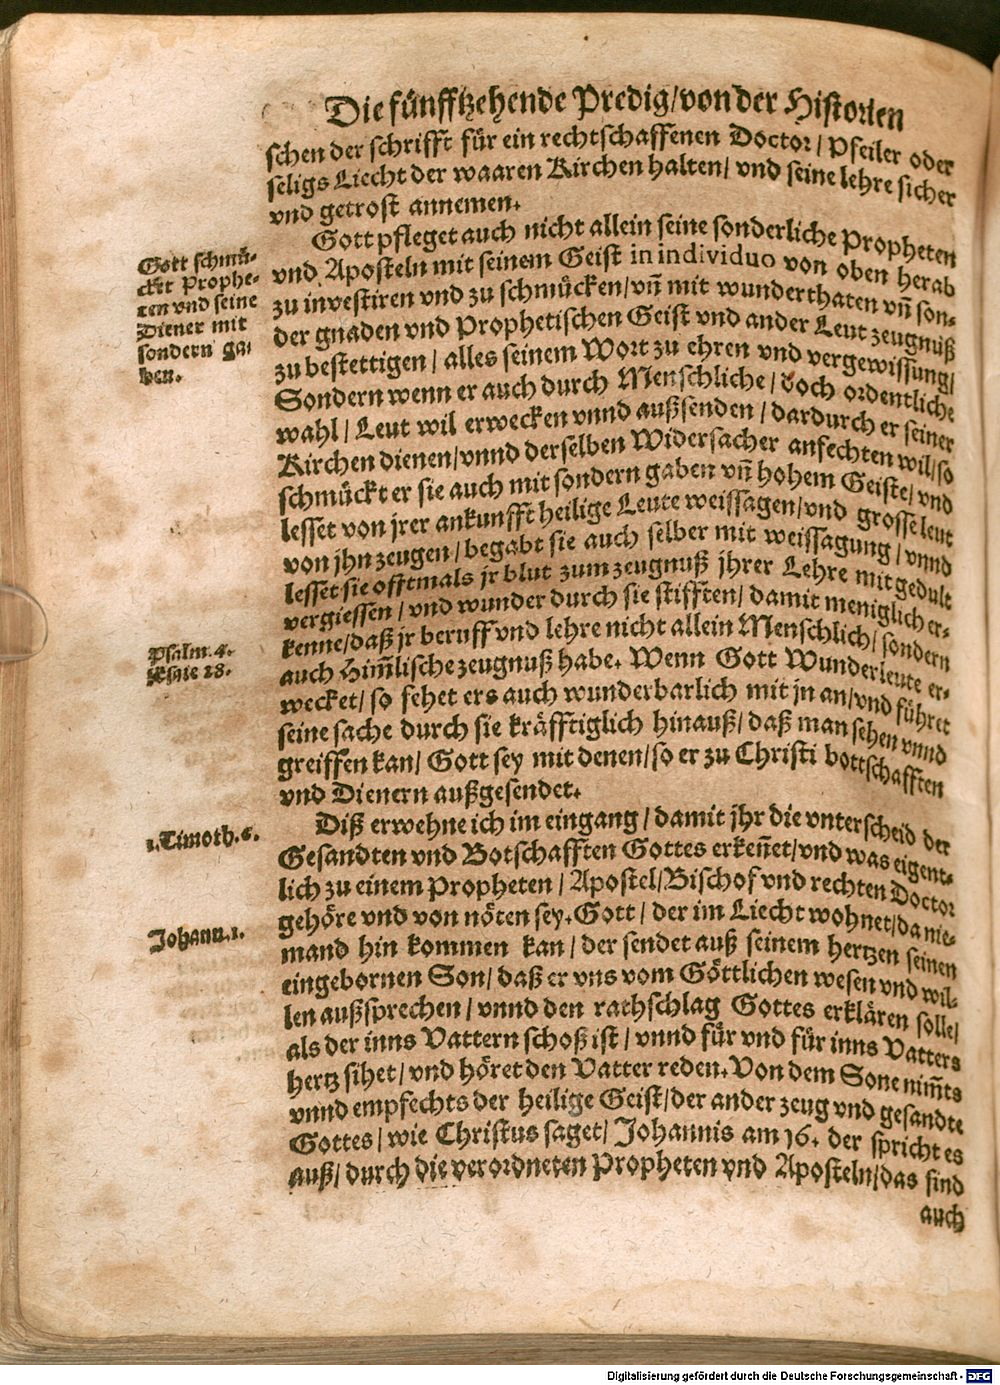 Die fünfftzehende Predig/von der Historien
schen der schrifft für ein rechtschaffenen Doctor/ Pfeiler oder
seligs Liecht der waaren Kirchen halten/ vnd seine lehre sicher
vnd getrost annemen.
Gott pfleget auch nicht allein seine sonderliche Propheten
vnd Aposteln mit seinem Geist in individuo von oben herab
zu investiren vnd zu schmücken/vñ mit wunderthaten vñ son-
der gnaden vnd Prophetischen Geist vnd ander Leut zeugnuß
zu bestettigen/ alles seinem Wort zu ehren vnd vergewissung/
Sondern wenn er auch durch Menschliche/ doch ordentliche
wahl/ Leut wil erwecken vnnd außsenden/ dardurch er seiner
Kirchen dienen/vnnd derselben Widersacher anfechten wil/so
schmückt er sie auch mit sondern gaben vñ hohem Geiste/ vnd
lesset von jrer ankunfft heilige Leute weissagen/vnd grosse leut
von jhn zeugen/ begabt sie auch selber mit weissagung/ vnnd
lesset sie offtmals jr blut zum zeugnuß jhrer Lehre mit gedult
vergiessen/ vnd wunder durch sie stifften/ damit meniglich er-
kenne/daß jr beruff vnd lehre nicht allein Menschlich/ sondern
auch Him̃lische zeugnuß habe. Wenn Gott Wunderleute er-
wecket/ so fehet ers auch wunderbarlich mit jn an/vnd führet
seine sache durch sie kräfftiglich hinauß/ daß man sehen vnnd
greiffen kan/ Gott sey mit denen/so er zu Christi bottschafften
vnd Dienern außgesendet.
Diß erwehne ich im eingang/ damit jhr die vnterscheid der
Gesandten vnd Botschafften Gottes erkeñet/vnd was eigent-
lich zu einem Propheten/ Apostel/Bischof vnd rechten Doctor
gehöre vnd von nöten sey. Gott/ der im Liecht wohnet/da nie-
mand hin kommen kan/ der sendet auß seinem hertzen seinen
eingebornen Son/ daß er vns vom Göttlichen wesen vnd wil-
len außsprechen/ vnnd den rathschlag Gottes erklären solle/
als der inns Vattern schoß ist/ vnnd für vnd für inns Vatters
hertz sihet/ vnd höret den Vatter reden. Von dem Sone nim̃ts
vnnd empfechts der heilige Geist/der ander zeug vnd gesandte
Gottes/ wie Christus saget/ Johannis am 16. der spricht es
auß/ durch die verordneten Propheten vnd Aposteln/das sind
auch
Gott schmü-
cket Prophe-
ten vnd seine
Diener mit
sondern ga-
ben.
Psalm. 4.
Esaie 28.
1. Timoth. 6.
Johann. 1.
Digitalisierung gefördert durch die Deutsche Forschungsgemeinschaft - DFG